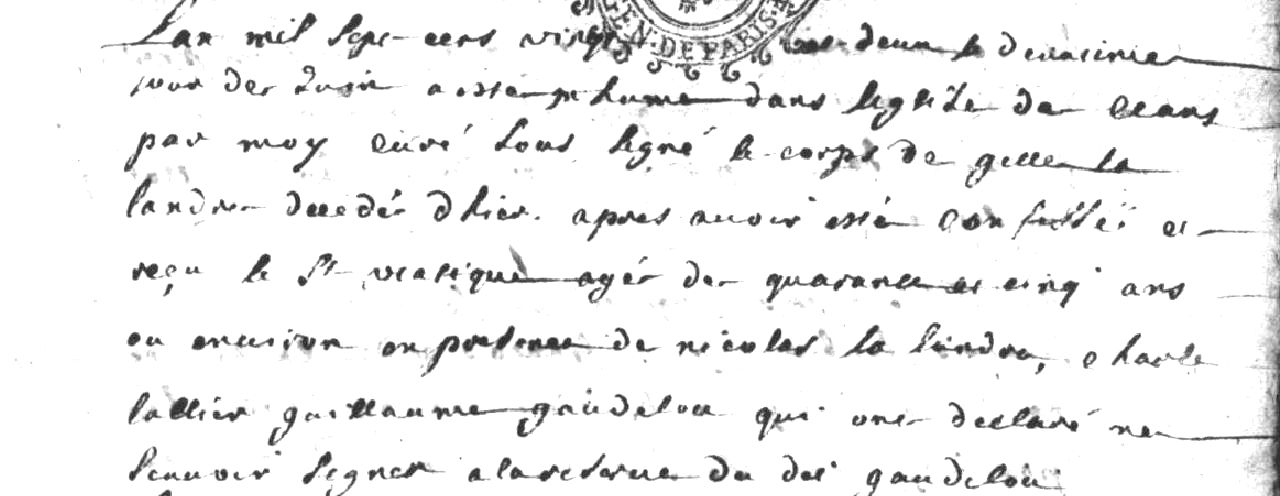 GEN. DE PARIS
Lan mil sept cens vingt deux le deuxieme
jour de Juin a este inhume dans leglise de ceans
par moy curé sous signé le corps de gille la
landre decedé dhier apres avoir esté confessé et
reçu le St viatique agé de quarante et cinq ans
ou environ en presence de nicolas la landre, charle
lallier guillaume gaudelou qui ont declaré ne
scavoir signer a la reserve du dit gaudelou